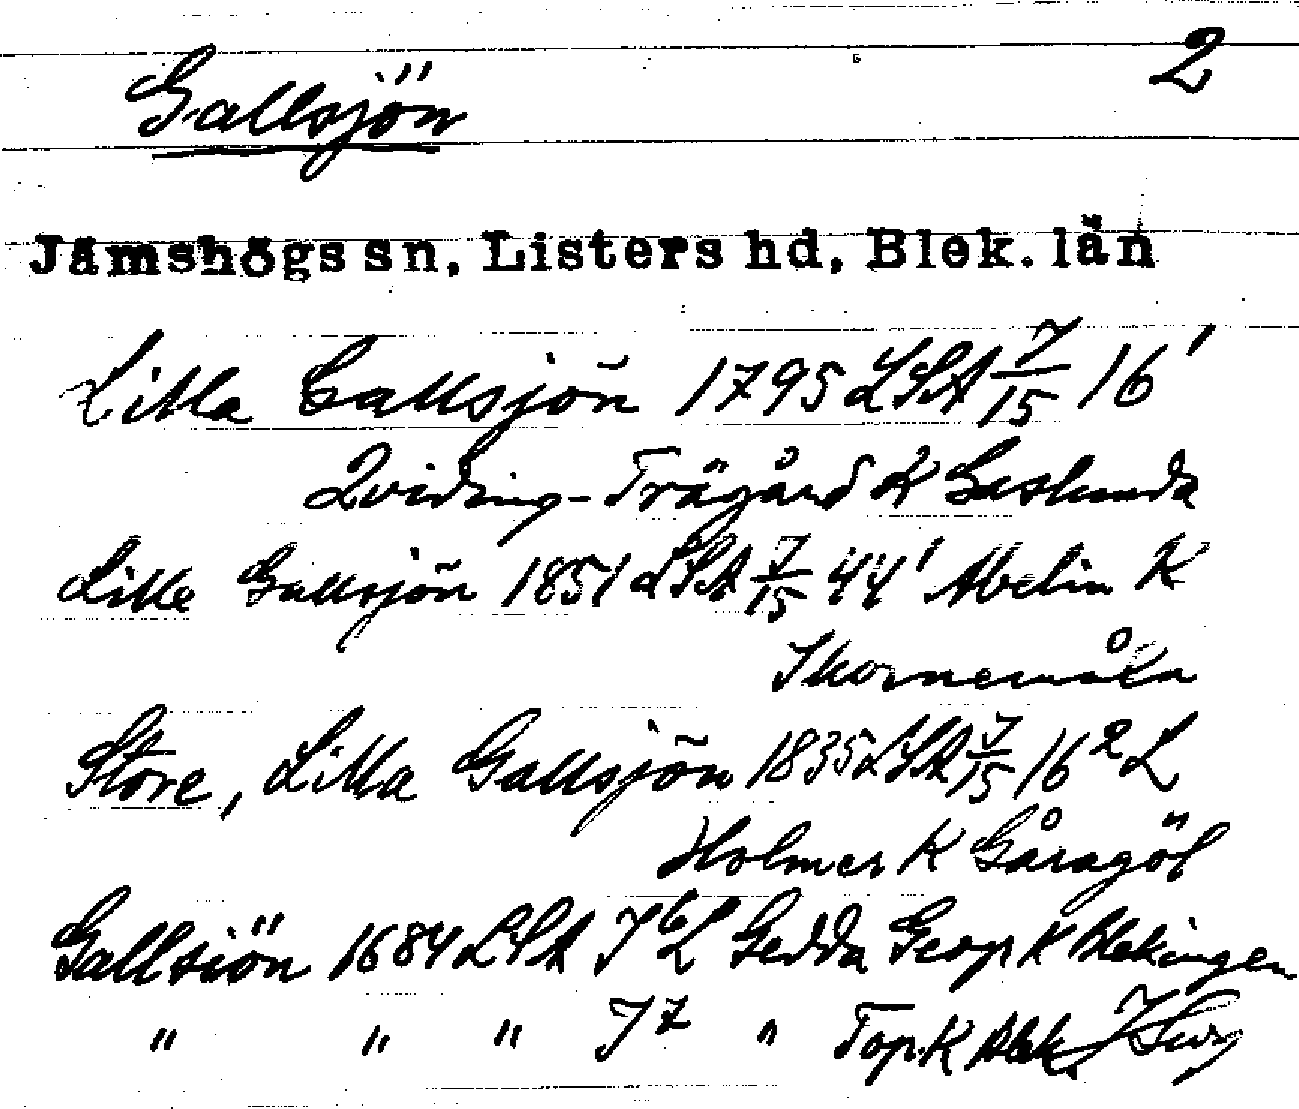 2
Gallsjön
Jämshögs sn, Listers hd, Blek. län
Lilla Gallsjön 1795 LSA 7/15 16'
Qviding-Trägård K Gaslunda
Lilla Gallsjön 1851 LSA 7/15 44' Abelin K
Skornemåla
Store, Lilla Gallsjön 1835 LSA 7/15 16² L
Holmer K Gåragöl
Gallsiön 1684 LSA J⁶ L Gedda Geogr K Blekingen
" " " J7 " Top. K Blek.